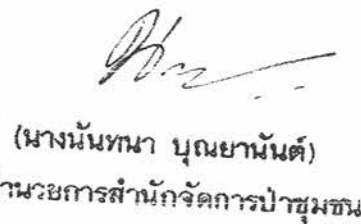 (นางนันทนา บุณยานันต์)
านวยการสำนักจัดการป่าชุมชน